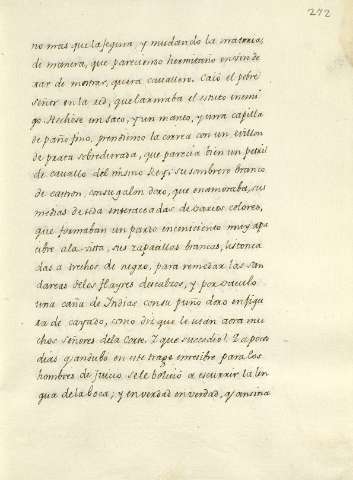 272
no mas que la segura, y mudando la materia,
de manera, que pareciesse hermitano en sin de
xar de mostrar, que era cavallero. Caió el pobre
señor en la red, que le armaba el astuto enemi
go. Hechose un saco, y un manto, y una capilla
de paño fino, prendiendo la correa con un evillon
de prata sobredorada, que parecia bien un petril
de cavallo del mismo Rey; su sombrero branco
de castron, con su galon doro, que enamoraba, sus
medias de seda entresacadas de varios colores,
que formaban un pardo ceniciento muy apa
cible a la vista; sus zapatillos brancos, listonea
das a trechos de negro, para remedar las san
dareas de los flayres descalzos, y por baculo
una caña de Indias con su puño doro en figu
ra de cayado, como diz que le usan aora mu
chos señores de la Corte. I que succedio? I a pocos
dias q̃ andubo en este trage en recibo para los
hombres de juicio se le bolvió a escurrir la len
gua de la boca; y en verdad en verdad, q̃ ansina